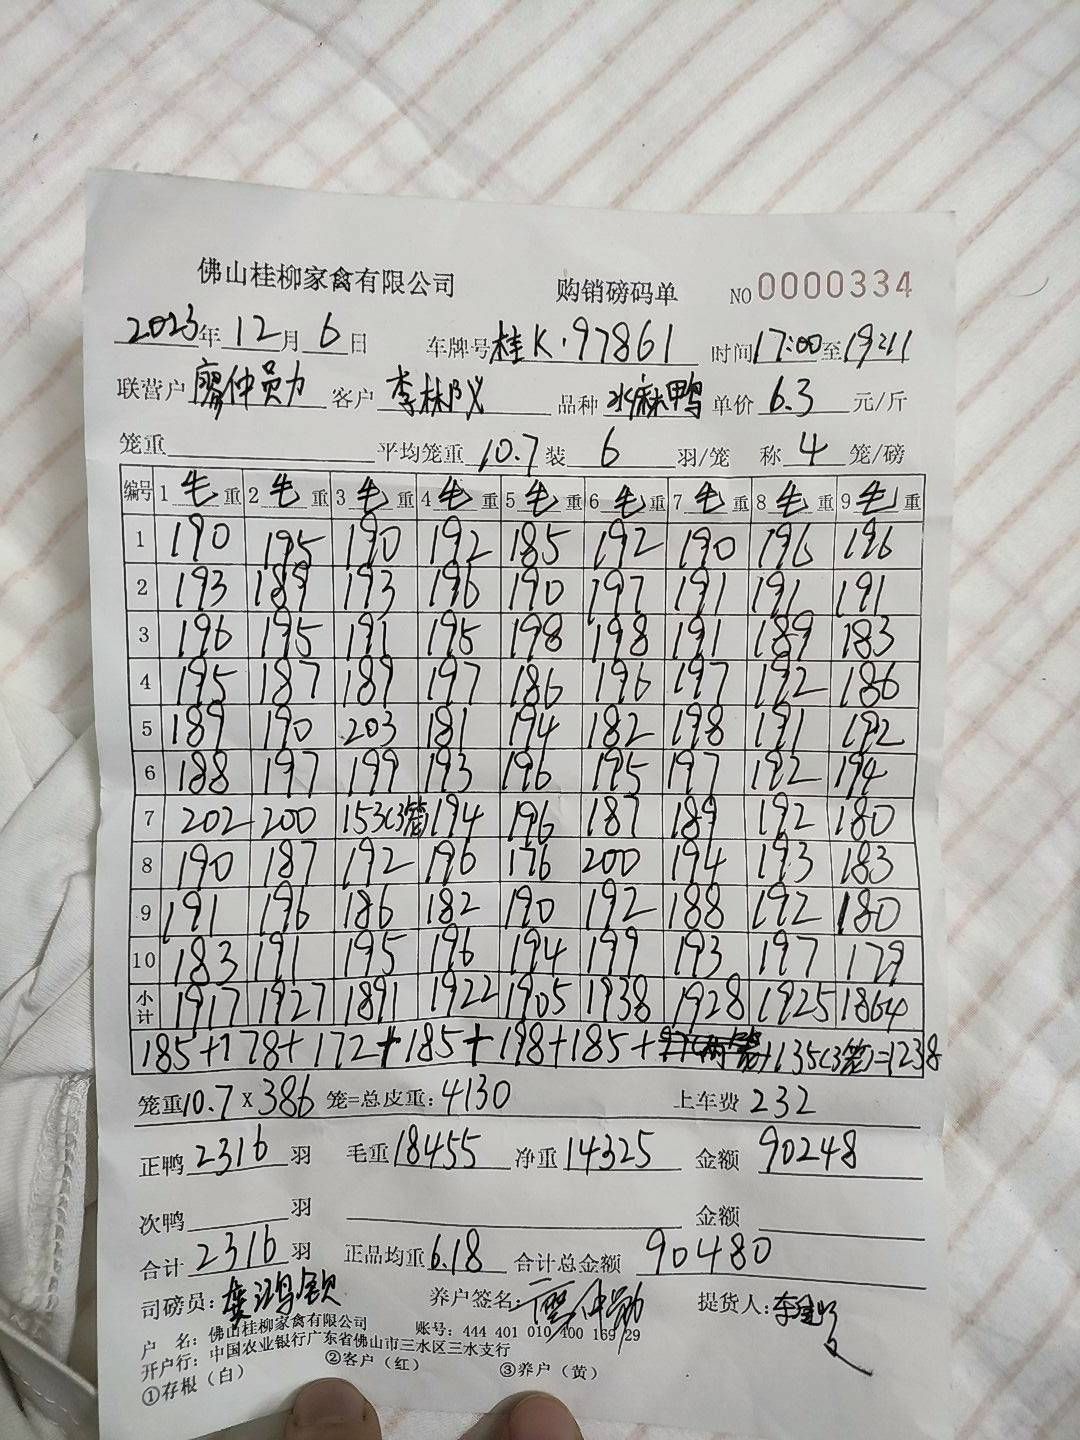 佛山桂柳家禽有限公司 购销磅码单 NO 0000334
2023年12月6日 车牌号桂K·97861 时间17:00至19:11
联营户廖仲员力 客户 品种水麻鸭 单价6.3元/斤
笼重 平均笼重10.7装6羽/笼 称4笼/磅
编号 1毛重 2毛重 3毛重 4毛重 5毛重 6毛重 7毛重 8毛重 9毛重
1 190 195 190 192 185 192 190 196 196
2 193 189 193 196 190 197 191 191 191
3 196 195 191 195 198 198 191 189 183
4 195 187 189 197 186 196 197 192 186
5 189 190 203 181 194 182 198 191 192
6 188 197 199 193 196 195 197 192 194
7 202 200 153(3笼) 194 196 187 189 192 180
8 190 187 192 196 176 200 194 193 183
9 191 196 186 182 190 192 188 192 180
10 183 191 195 196 194 199 193 197 179
小计 1917 1927 1891 1922 1905 1938 1928 1925 1864
185+178+172+185+198+185+ +135(3笼)=1238
笼重10.7×386笼=总皮重:4130 上车费232
正鸭2316羽 毛重18455 净重14325 金额90248
次鸭 羽 金额
合计2316羽 正品均重6.18 合计总金额90480
司磅员: 养户签名: 提货人:
户 名:佛山桂柳家禽有限公司 账号:444 401 010 400 169 29
开户行:中国农业银行广东省佛山市三水区三水支行
①存根(白) ②客户(红) ③养户(黄)